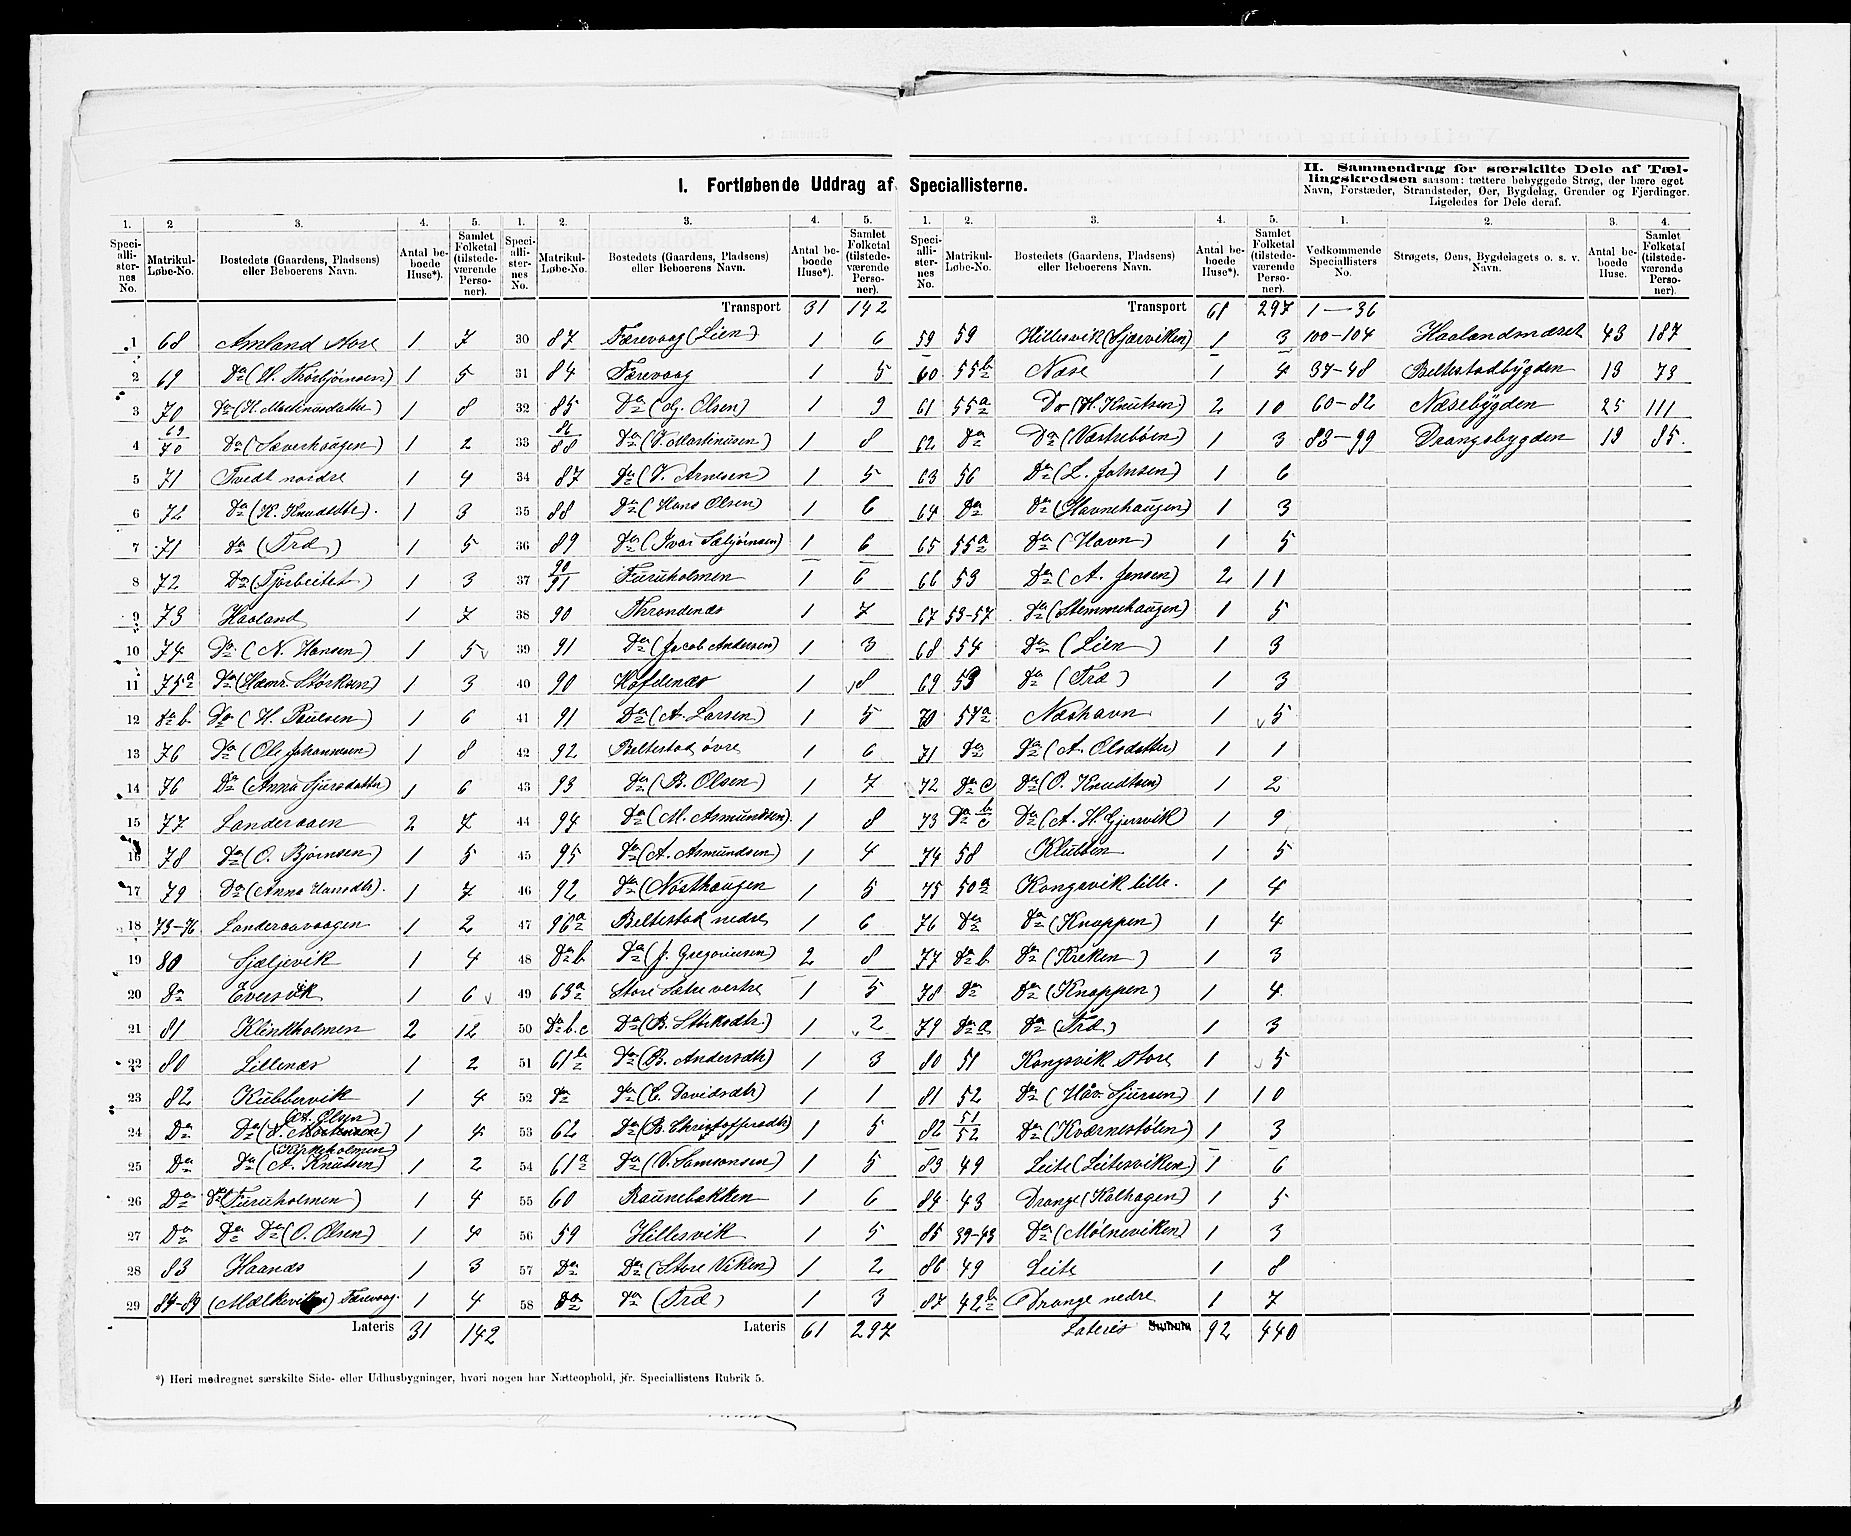 I. Fortløbende Uddrag af Speciallisterne.
II. Sammendrag for særskilte Dele af Tællingskredsen saasom: tættere bebyggede Strøg, der bære eget
Navn, Forstæder, Strandsteder, Øer, Bygdelag, Grender og Fjerdinger.
Ligeledes for Dele deraf.
1. 2 3. 4. 5.
Speciallisternes No. Matrikul-Løbe-No. Bostedets (Gaardens, Pladsens) eller Beboerens Navn. Antal beboede Huse*). Samlet Folketal (tilstedeværende Personer).
1 68 Amland store 1 7
2 69 Do (H. Thorbjørnsen) 1 5
3 70 Do (H. Martinusdatter) 1 8
4 69/70 Do 1 2
5 71 Tvedt nordre 1 4
6 72 Do (K. Knudsdtr). 1 3
7 71 do (Træ) 1 5
8 72 Do (Tjørbeitet) 1 3
9 73 Haaland 1 7
10 74 Do (N. Hansen) 1 5
11 75a Do (Hæmr. Størksen) 1 3
12 do b Do (H. Paulsen) 1 6
13 76 Do (Ole Johannesen) 1 8
14 76 Do (Anna Sjursdatter) 1 6
15 77 Landeraaen 2 7
16 78 Do (O. Bjørnsen) 1 5
17 79 Do (Anna Hansdtr). 1 7
18 73-76 Landeraavaagen 1 2
19 80 Sjæljevik 1 4
20 Do Eversvik 1 6
21 81 Klinkholmen 2 12
22 80 Lillenæs 1 2
23 82 Kubbervik 1 4
24 Do Do (A. Olsen) 1 4
25 Do Do (A. Knutsen) 1 2
26 Do Do (Furuholmen) 1 4
27 Do Do Do (O. Olsen) 1 4
28 83 Haanæs 1 3
29 84-89 (Mælkeviken) Færevaag. 1 4
Lateris 31 142
1. 2. 3. 4. 5.
Speciallisternes No. Matrikul-Løbe-No. Bostedets (Gaardens, Pladsens) eller Beboerens Navn. Antal beboede Huse*). Samlet Folketal (tilstedeværende Personer).
Transport 31 142
30 87 Færevaag (Lien) 1 6
31 84 Færevaag 1 5
32 85 Do (Olsen) 1 9
33 86/88 Do (V. Martinusen) 1 8
34 87 Do (V. Arnesen) 1 5
35 88 Do (Hans Olsen) 1 6
36 89 Do (Ivar Sæbjørnsen) 1 6
37 90/91 Furuholmen 1 6
38 90 Throndenæs 1 7
39 91 Do (Jacob Andersen) 1 3
40 90 Hafdenæs 1 8
41 91 Do (A. Larsen) 1 5
42 92 Beltestad øvre 1 6
43 93 Do (B. Olsen) 1 7
44 94 Do (M. Asmundsen). 1 8
45 95 Do (A. Asmundsen) 1 4
46 92 Do (Nøsthaugen 1 5
47 96a Beltestad nedre 1 6
48 Do b Do (J. Gregoriusen) 2 8
49 63a Store Sætre vestre 1 5
50 Do b. c Do (B. Størksdtr.) 1 2
51 61b Do (B. Andersdtr) 1 3
52 Do Do (C. Davidsdtr) 1 1
53 62 Do (B. Christoffersdtr) 1 5
54 61a Do (V. Samsonsen) 1 5
55 60 Raunebakken 1 6
56 59 Hillesvik 1 5
57 Do Do (Store Viken) 1 2
58 Do Do (Træ) 1 3
Lateris 61 297
1. 2. 3. 4. 5.
Speciallisternes No. Matrikul-Løbe-No. Bostedets (Gaardens, Pladsens) eller Beboerens Navn. Antal beboede Huse*). Samlet Folketal (tilstedeværende Personer).
Transport 61 297
59 59 Hillesvik (Sjærviken) 1 3
60 55b Næse 1 4
61 55a Do (H. Knutsen) 2 10
62 Do Do (Næstrebøen) 1 3
63 56 Do (L. Johnsen) 1 6
64 Do Do (Havnehaugen) 1 3
65 55a Do (Havn) 1 5
66 53 Do (A. Jensen) 2 11
67 53-57 Do (Stemmehaugen) 1 5
68 54 Do (Lien) 1 3
69 53 Do (Træ) 1 3
70 54a Næshavn 1 5
71 Do Do (A. Olsdatter) 1 1
72 Do c Do (O. Knudtsen) 1 2
73 Do b/c Do (A. H. Gjersvik) 1 9
74 58 Klubben 1 5
75 50a Kongsvik lille. 1 4
76 Do Do (Knappen) 1 4
77 Do b Do (Kreken) 1 3
78 Do Do (Knappen) 1 4
79 Do a Do (Træ) 1 3
80 51 Kongsvik store 1 5
81 52 Do (Håv. Sjursen) 1 10
82 51/52 Do (Kværnestølen) 1 3
83 49 Leite (Leitesviken) 1 6
84 43 Drange (Kalhagen) 1 5
85 39-43 Do (Mølneviken) 1 3
86 49 Leite 1 8
87 42b Drange nedre 1 7
Lateris Summa 92 440
1. 2. 3. 4.
Vedkommende Speciallisters No. Strøgets, Øens, Bygdelagets o. s. v. Navn. Antal beboede Huse. Samlet Folketal (tilstedeværende Personer).
1 — 36
100-104 Haalandmæret 43 187
37-48 Beltestadbygden 13 73
60-82 Næsebygden 25 111
83-99 Drangsbygden 19 85.
*) Heri medregnet særskilte Side- eller Udhusbygninger, hvori nogen har Natteophold, jfr. Speciallistens Rubrik 5.